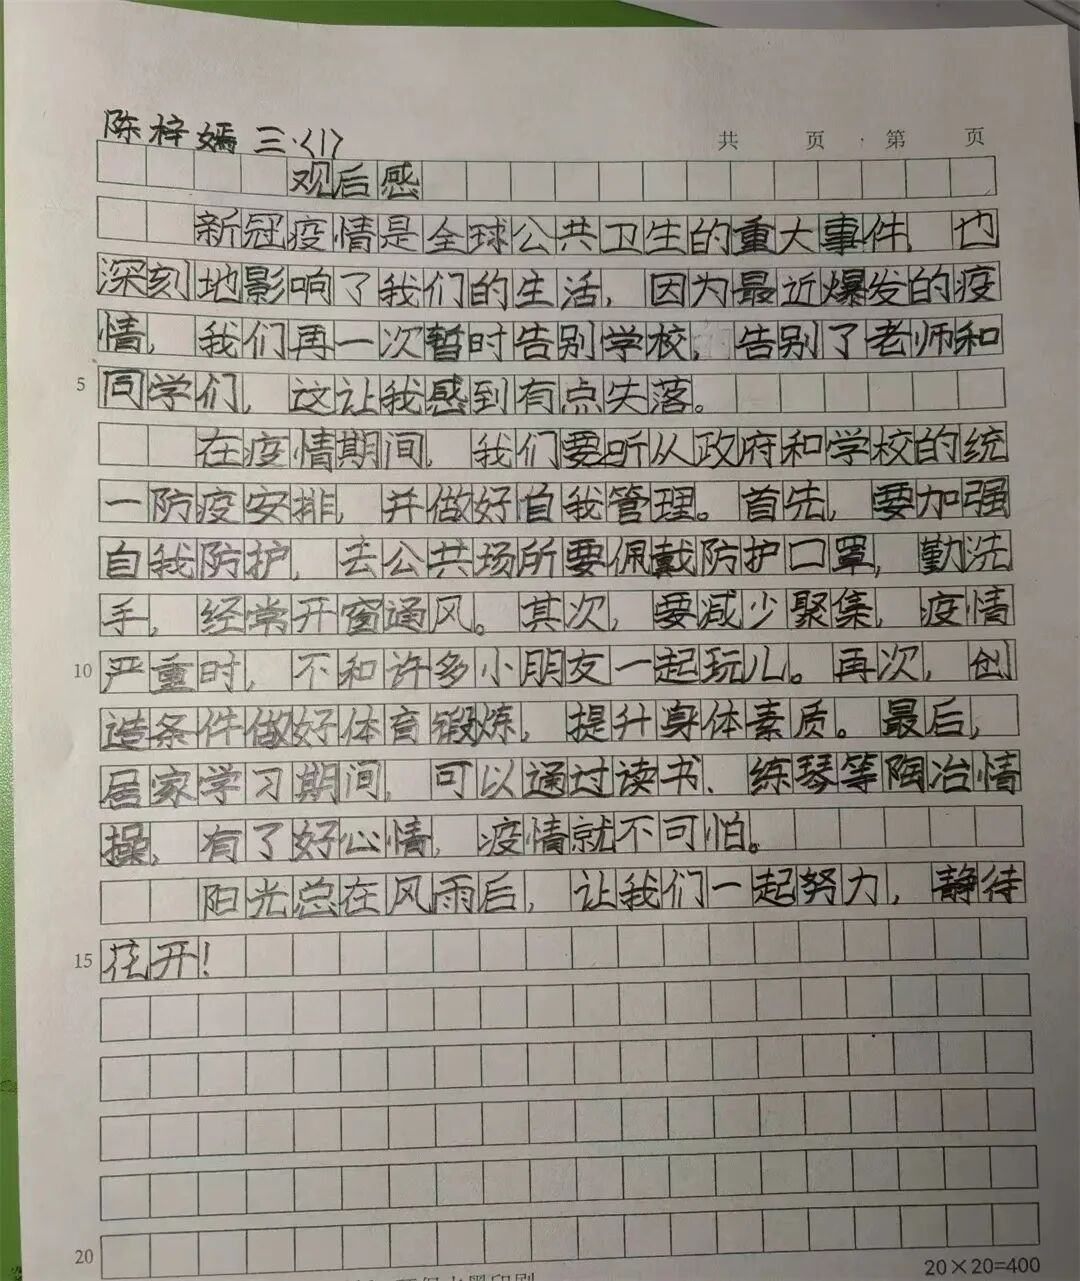 陈梓嫣 三·〈1〉
共 页 · 第 页
观后感
新冠疫情是全球公共卫生的重大事件,也
深刻地影响了我们的生活,因为最近爆发的疫
情,我们再一次暂时告别学校,告别了老师和
5 同学们,这让我感到有点失落。
在疫情期间,我们要听从政府和学校的统
一防疫安排,并做好自我管理。首先,要加强
自我防护,去公共场所要佩戴防护口罩,勤洗
手,经常开窗通风。其次,要减少聚集,疫情
10 严重时,不和许多小朋友一起玩儿。再次,创
造条件做好体育锻炼,提升身体素质。最后,
居家学习期间,可以通过读书、练琴等陶冶情
操,有了好心情,疫情就不可怕。
阳光总在风雨后,让我们一起努力,静待
15 花开!
20
20×20=400